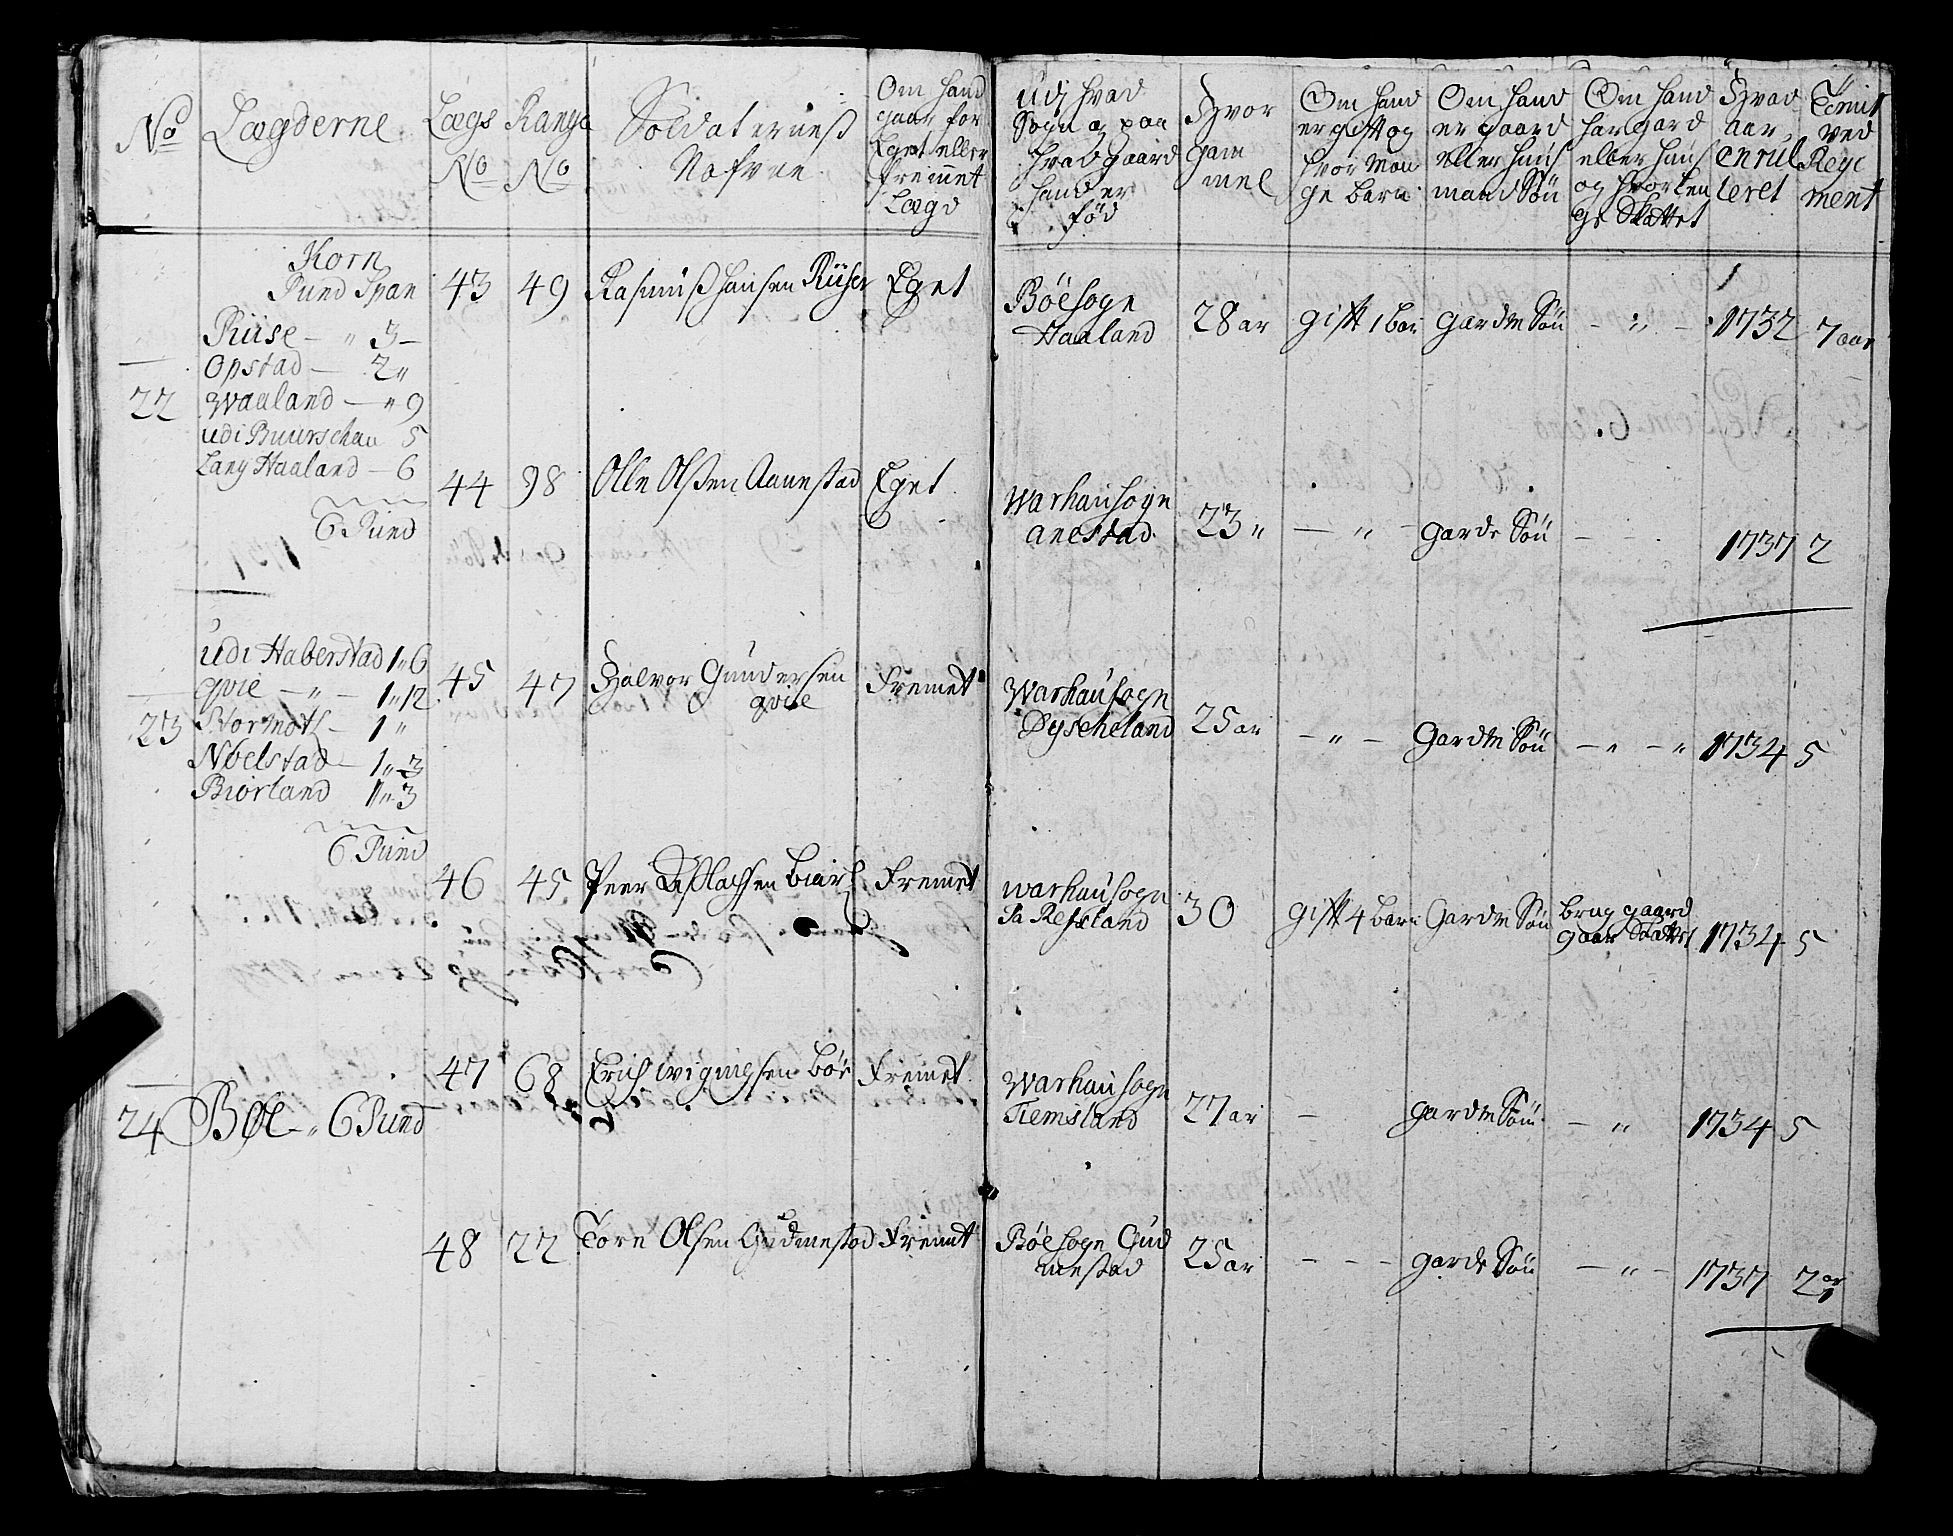 No
Lægderne
Lægs
No
Rangs
No
Soldaterness
Nafvne
Om hand
gaar for
Eget eller
fremet
Lægd
udj hvad
Sogn og paa
hvad gaard
hand er
fød
Hvor
gam
mel
Om hand
er gift og
hvor man
ge barn
Om hand
er gaard
eller huus
mand Søn
Om hand
har gard
eller huus
og hvorlen
ge Skattet
Hvad
aar
enrul
leret
Tienit
ved
Regi
ment
Korn
Pund Span
Riise — " 3 —
Opstad — 2 "
22 Waaland — " 9
udi Buurschau 5
Lang Haaland — 6
6 Pund
43 49 Rasmus Hansen Riise Eget
Bøe sogn
Haaland
28 ar
gift 1 bar
gardm Søn
1732
7 aar
44 98 Olle Olsen Aanestad Eget
Warhaug sogn
anestad
23 "
— " —
gards Søn
1737 2
udi Haberstad 1 " 6
Qvie — " — 1 " 12
23 Stormoth — 1 "
Noelstad — 1 " 3
Biorland 1 " 3
6 Pund
45 47 Halvor Gundersen
qvie
Fremet
Warhaug sogn
Dyscheland
25 ar
— " —
Gardm Søn
1734 5
46 45 Peer Fremet
warhaug sogn
Refsland
30
Gift 4 barn
Gardm Søn
brug gaard
1734 5
24 Bøe — " 6 Pund
47 68 Erich bøe Fremet
Warhaug sogn
Tiemsland
27 ar
—
gardm Søn
— "
1734 5
48 22 Tore Olsen Gudmestad Fremet
Bøe sogn Gud
mestad
25 ar
— — —
gards Søn
— " —
1737 2 ar